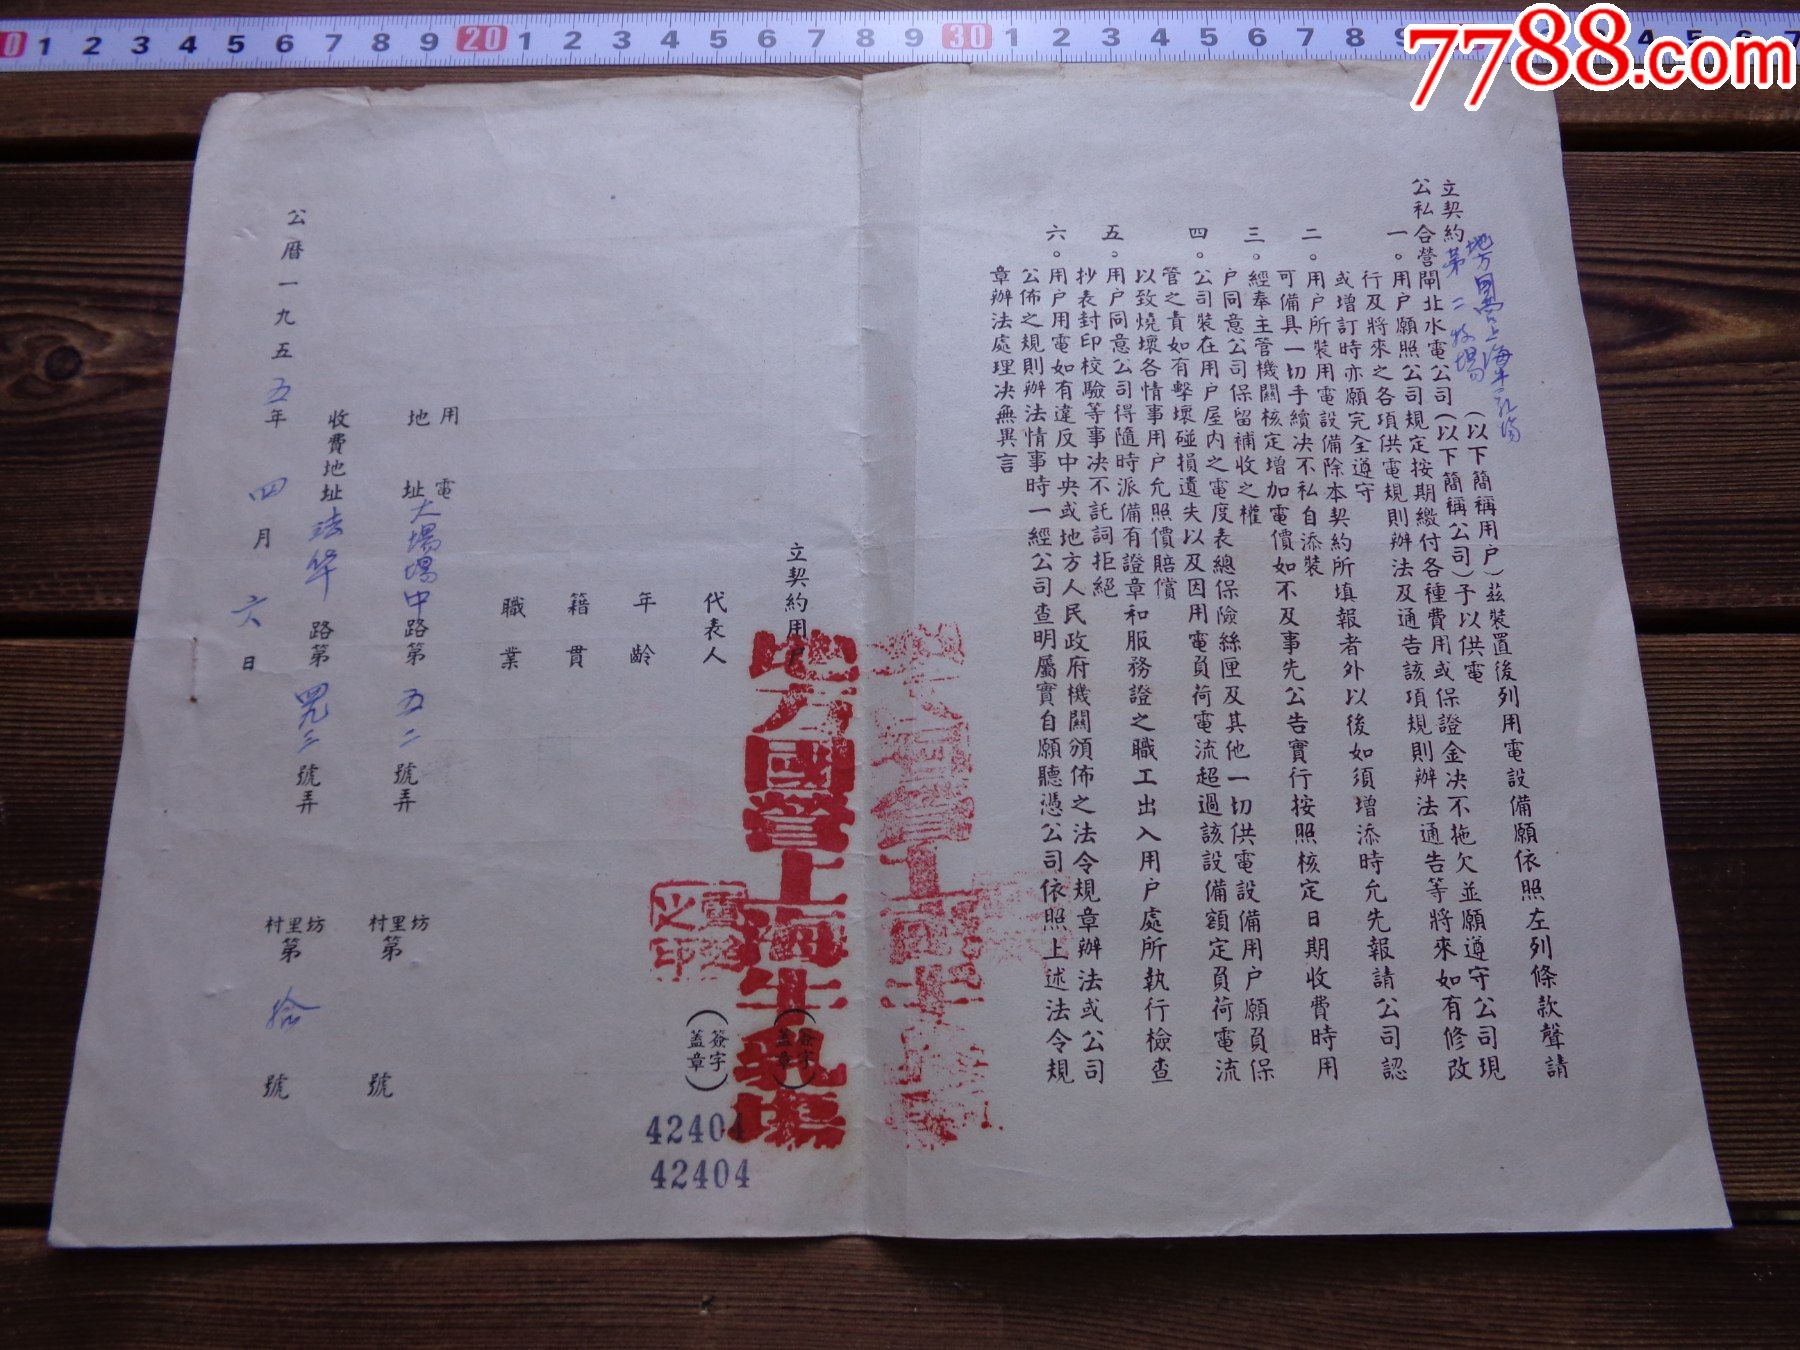 0 1 2 3 4 5 6 7 8 9 20 1 2 3 4 5 6 7 8 9 30 1 2 3 4 5 6 7 8 9
7788.com
立契約 地方國營上海牛乳場
第二牧場
(以下簡稱用户)茲裝置後列用電設備願依照左列條款聲請
公私合營閘北水電公司(以下簡稱公司)予以供電
一。用户願照公司規定按期繳付各種費用或保證金决不拖欠並願遵守公司現
行及將來之各項供電規則辦法及通告該項規則辦法通告等將來如有修改
或增訂時亦願完全遵守
二。用户所裝用電設備除本契約所填報者外以後如須增添時允先報請公司認
可備具一切手續决不私自添裝
三。經奉主管機關核定增加電價如不及事先公告實行按照核定日期收費時用
户同意公司保留補收之權
四。公司裝在用户屋内之電度表總保險絲匣及其他一切供電設備用户願負保
管之責如有擊壞碰損遺失以及因用電負荷電流超過該設備額定負荷電流
以致燒壞各情事用户允照價賠償
五。用户同意公司得隨時派備有證章和服務證之職工出入用户處所執行檢查
抄表封印校驗等事决不託詞拒絕
六。用户用電如有違反中央或地方人民政府機關頒佈之法令規章辦法或公司
公佈之規則辦法情事時一經公司查明屬實自願聽憑公司依照上述法令規
章辦法處理决無異言
立契約用户
地方國營上海牛乳場
(簽字蓋章)
代表人
之印
(簽字蓋章)
年齡
籍貫
職業
用電地址 大場場中路第五二號弄 坊里村第 號
收費地址 法华路第 號弄 坊里村第拾號
公曆一九五五年四月六日
42404
42404